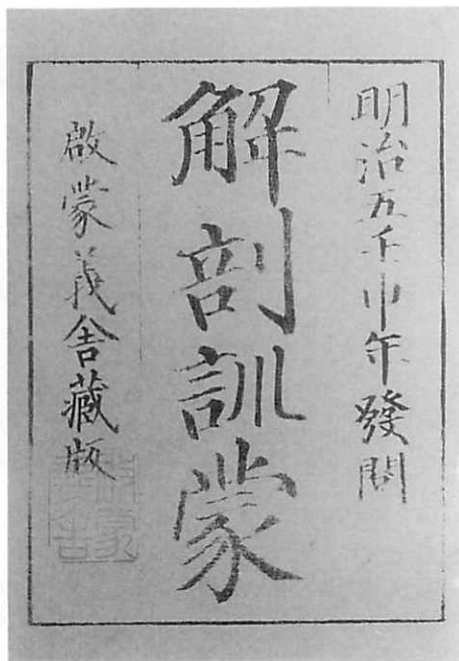 明治五壬申年發
解剖訓蒙
啟蒙義舍藏版